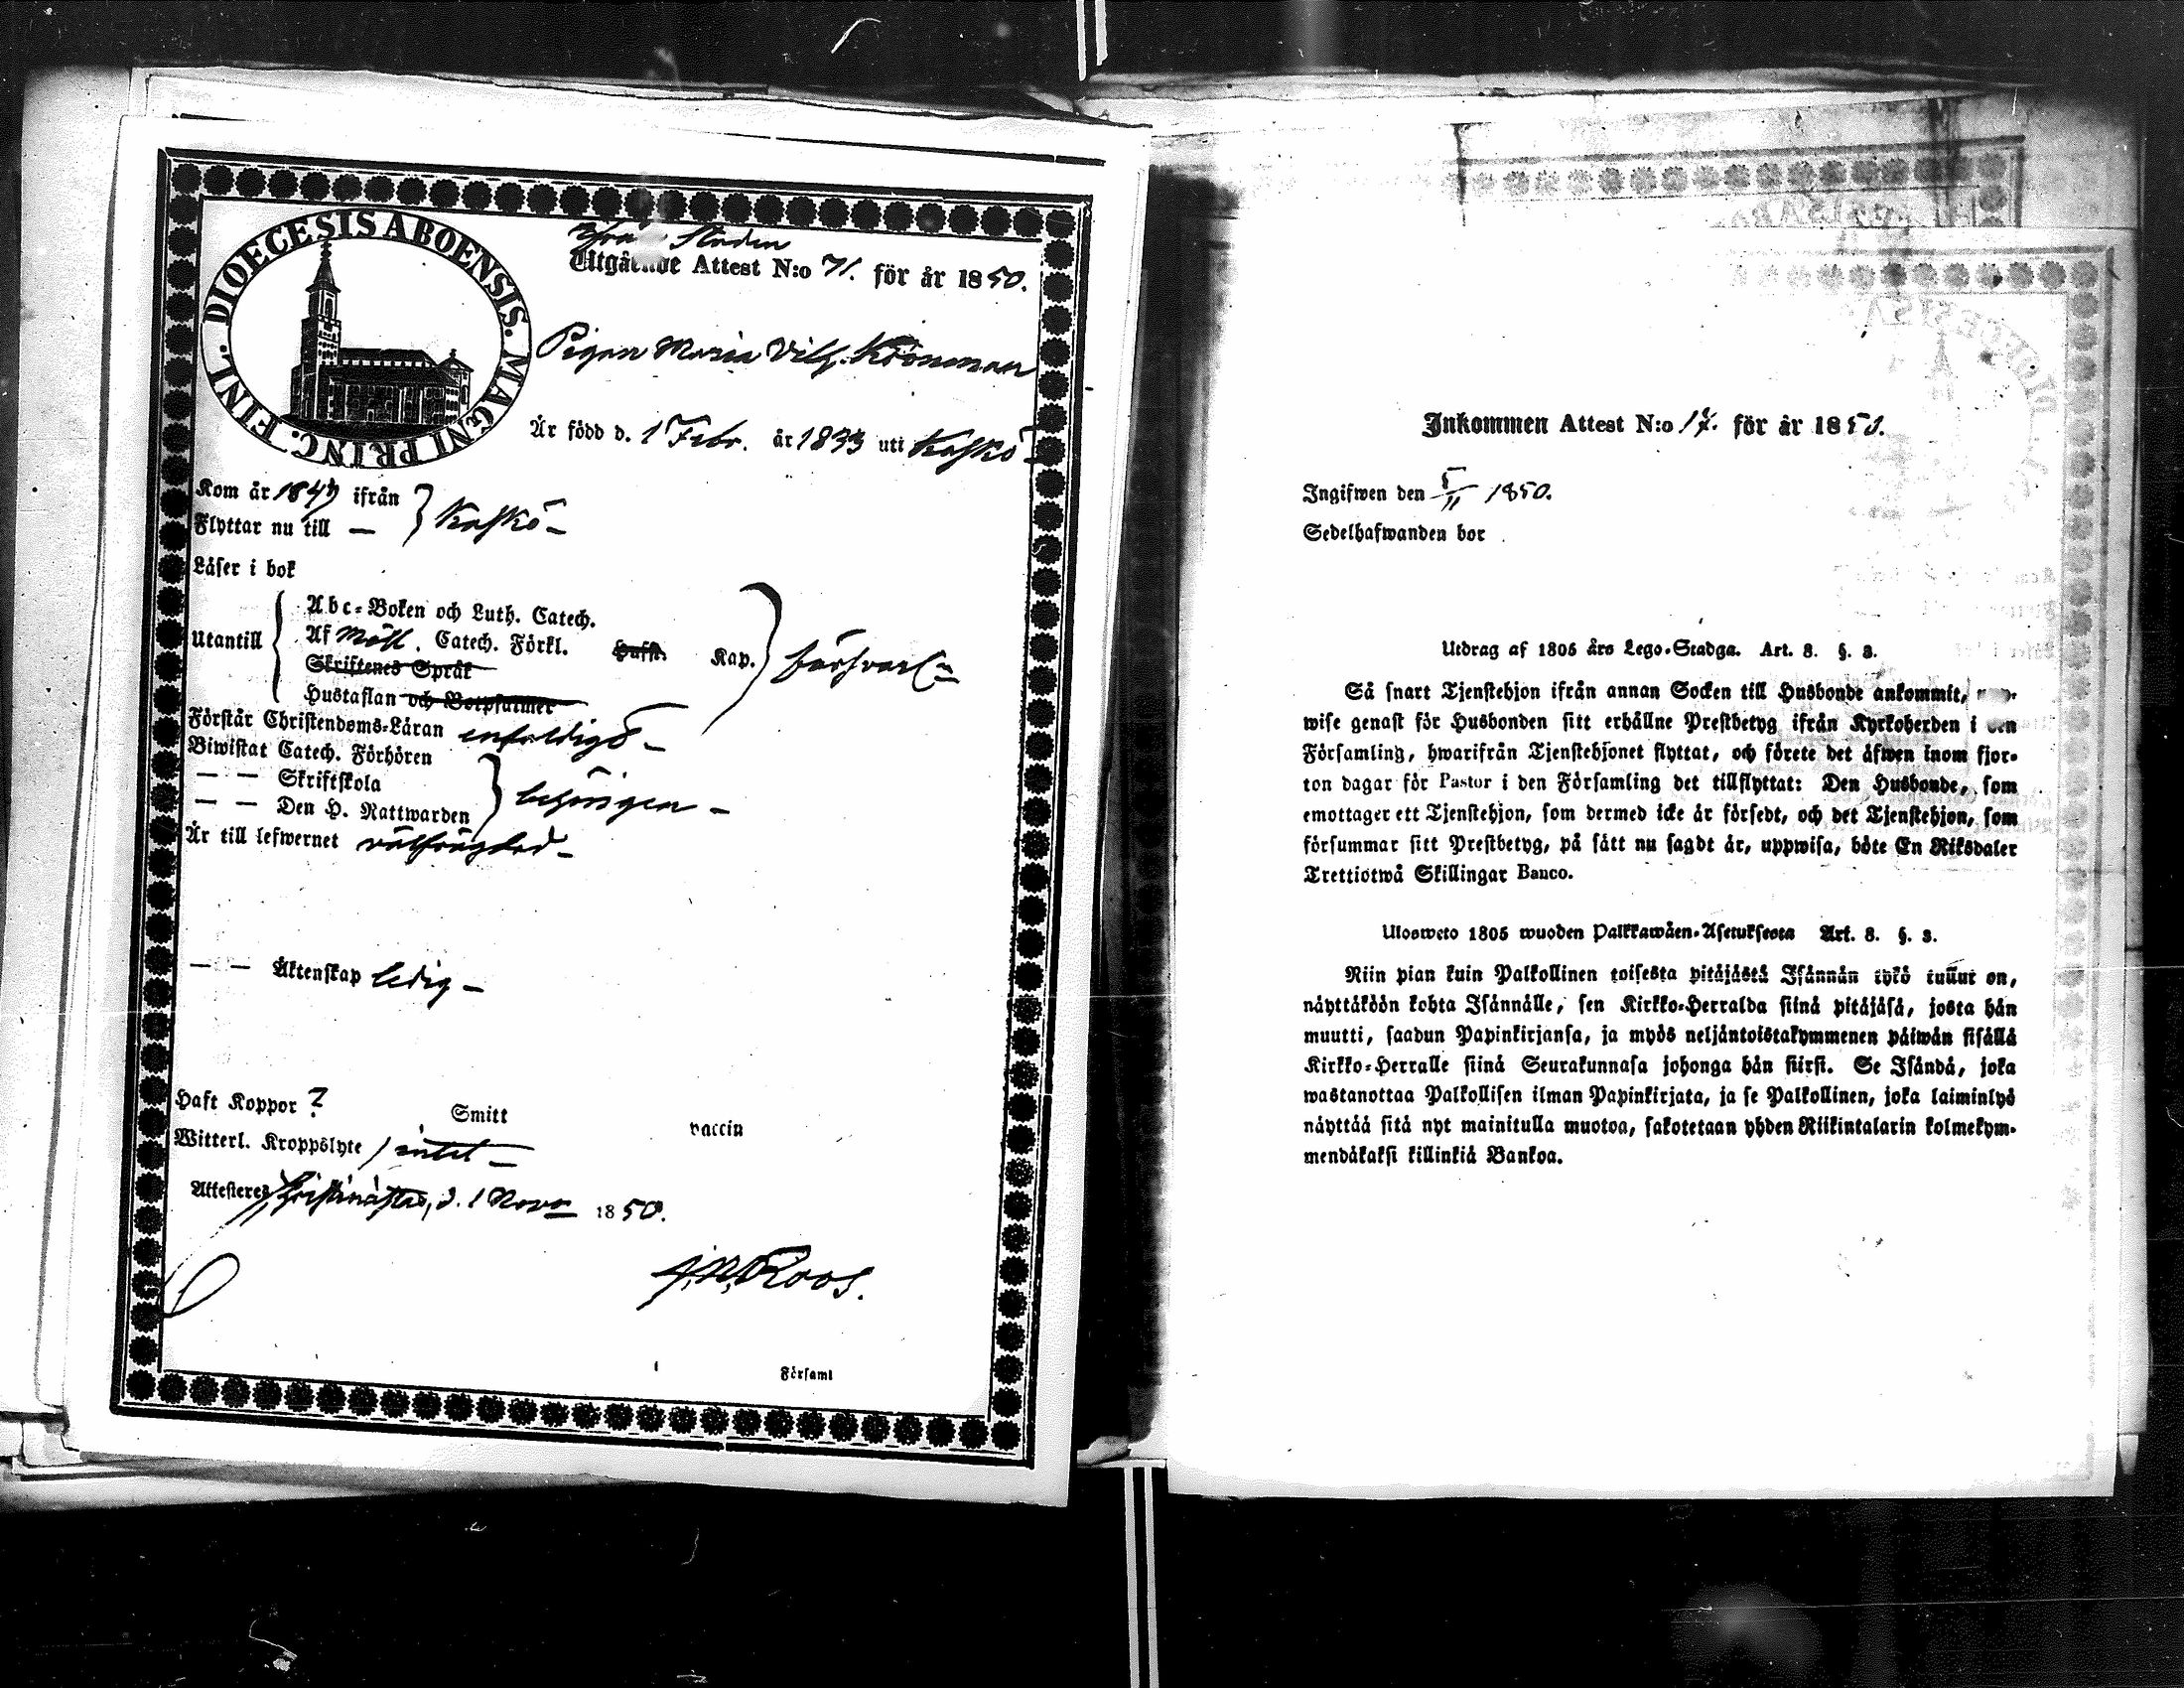 DIOECESIS ABOENSIS. MAGNI PRINC. FINL.
Från Staden
Utgående Attest N:o 71. för år 1850.
Pigan Maria Vilh. Krönman
Är född d. 1 Febr. år 1833 uti Kaskö
Kom år 1849 ifrån
Flyttar nu till — } Kaskö –
Läser i bok
Abc-Boken och Luth. Catech.
Utantill { Af Möll. Catech. Förkl. Hufst. Kap. } försvarl.
Skriftenes Språk
Hustaflan och Botpsalmer
Förstår Christendoms-Läran enfaldigt –
Biwistat Catech. Förhören
— — Skriftskola
— — Den H. Nattwarden } behörigen –
Är till lefwernet välfrägdad –
— — Äktenskap ledig –
Haft Koppor ? Smitt vaccin
Witterl. Kroppslyte intet –
Attesterer, Christinæstad, d. 1 Nov. 1850.
J. N. Roos.
Församl
Inkommen Attest N:o 17. för år 1850.
Ingifwen den 5/11 1850.
Sedelhafwanden bor
Utdrag af 1805 års Lego-Stadga. Art. 8. §. 3.
Så snart Tjenstehjon ifrån annan Socken till Husbonde ankommit,
wise genast för Husbonden sitt erhållne Prestbetyg ifrån Kyrkoherden i den
Församling, hwarifrån Tjenstehjonet flyttat, och förete det äfwen inom fjor-
ton dagar för Pastor i den Församling det tillflyttat: Den Husbonde, som
emottager ett Tjenstehjon, som dermed icke är försedt, och det Tjenstehjon, som
försummar sitt Prestbetyg, på sätt nu sagdt är, uppwisa, böte En Riksdaler
Trettiotwå Skillingar Banco.
Ulosweto 1805 wuoden Palkkawäen-Asetuksesta Art. 8. §. 3.
Niin pian kuin Palkollinen toisesta pitäjästä Isännän tykö tullut on,
näyttäköön kohta Isännälle, sen Kirkko-Herralda siinä pitäjäsä, josta hän
muutti, saadun Papinkirjansa, ja myös neljäntoistakymmenen päiwän sisällä
Kirkko-Herralle siinä Seurakunnasa johonga hän siirsi. Se Isändä, joka
wastanottaa Palkollisen ilman Papinkirjata, ja se Palkollinen, joka laiminlyö
näyttää sitä nyt mainitulla muotoa, sakotetaan yhden Riikintalarin kolmekym-
mendäkaksi killinkiä Bankoa.